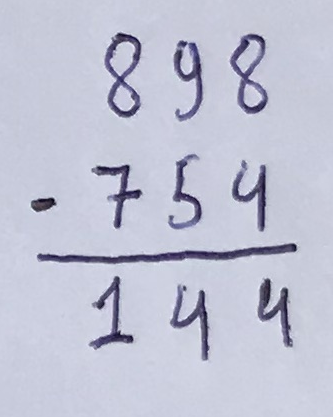 898
- 754
144